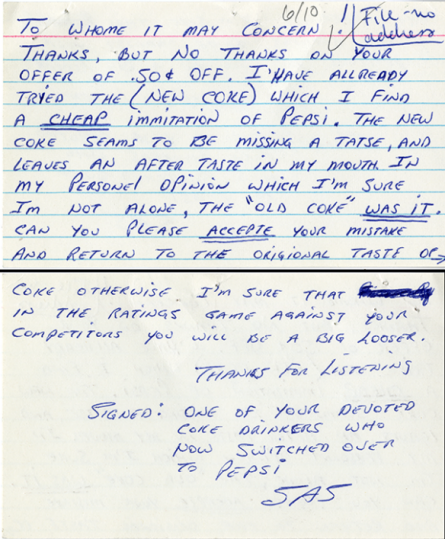 6/10 ! File-no
address
To WHOME IT MAY CONCERN:
THANKS, BUT NO THANKS ON YOUR
OFFER OF .50¢ OFF. I'HAVE ALLREADY
TRYED THE (NEW COKE) WHICH I FIND
A CHEAP IMMITATION OF PEPSI. THE NEW
COKE SEAMS TO BE MISSING A TATSE, AND
LEAVES AN AFTER TASTE IN MY MOUTH. IN
MY PERSONEL OPINION WHICH I'M SURE
I'M NOT ALONE, THE "OLD COKE" WAS IT.
CAN YOU PLEASE ACCEPTE YOUR MISTAKE
AND RETURN TO THE ORIGIONAL TASTE OF→
COKE OTHERWISE I'M SURE THAT
IN THE RATINGS GAME AGAINST YOUR
COMPETITORS YOU WILL BE A BIG LOOSER.
THANKS FOR LISTENING
SIGNED: ONE OF YOUR DEVOTED
COKE DRINKERS WHO
NOW SWITCHED OVER
TO PEPSI
SAS